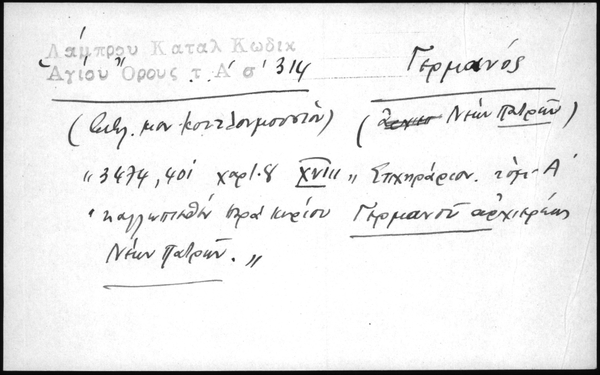 Λάμπρου Καταλ Κωδικ
Ἁγίου Ὄρους τ Α΄ σ 314
Γερμανός
(Βιβλ. μον. Κουτλουμουσίου) (ἀρχιε Νέων Πατρῶν)
"3474, 401 χαρτ. 8 XVIII " Στιχηράριον. τόμ. Α΄
καλλωπισθὲν παρὰ κυρίου Γερμανοῦ ἀρχιερέως
Νέων Πατρῶν. "